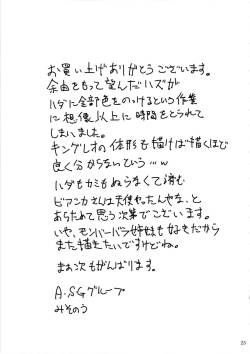 お買い上げありがとうございます。
余由をもって望んだハズが
ハダに全部色をのっけるという作業
に想像以上に時間をとられて
しまいました。
キングレオの体形も描けば描くほど
良く分からないていう…w
ハダもカミもぬらなくて済む
ビアンカさんは天使やったんやな、と
あらためて思う次第でございます。
いや、モンバーバラ姉妹も好きだから
また描きたいですけどね。
まぁ次もがんばります。
A・SGグループ
みそのう
23